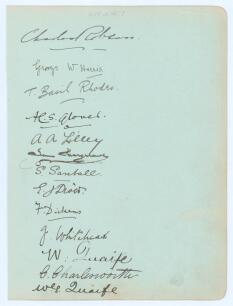 Charles Robson.
George W Harris
T. Basil Rhodes.
H.S. Glover.
A A Lilley
S. Santall
F Dickens
J Whitehead
W. Quaife
C. Charlesworth
W G Quaife